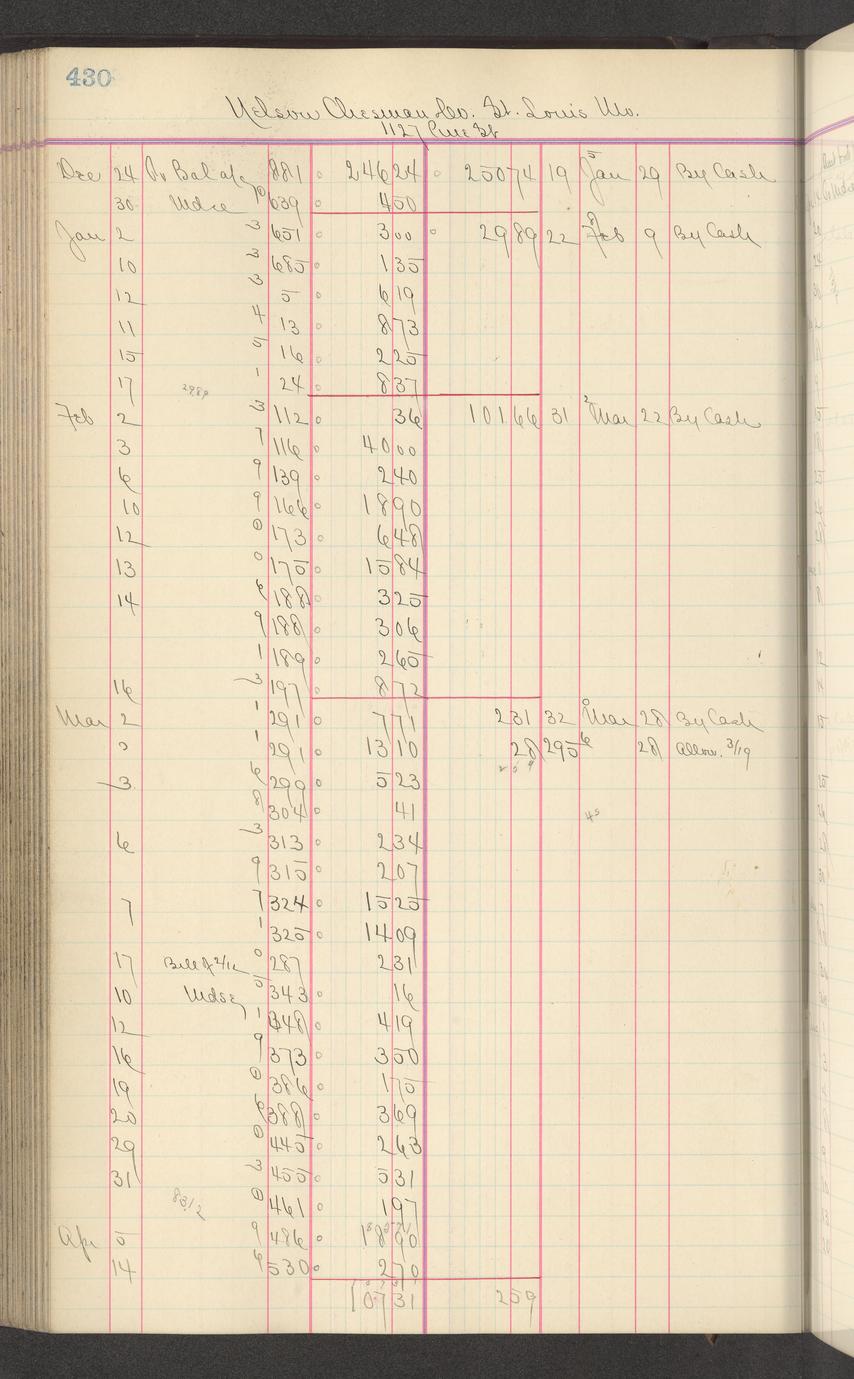 430
Nelson Chesman Co. St. Louis Mo.
1127 Pine St
Dec 24 To Bal 881 246 24 250 74 19 Jan 29 By Cash
30 Mdse 639 4 50
Jan 2 3 651 3 00 29 89 22 Feb 9 By Cash
10 3 685 1 35
12 3 5 6 19
11 4 13 8 73
15 5 16 2 25
17 2989 1 24 8 37
Feb 2 3 112 36 101 66 31 Mar 22 By Cash
3 7 116 40 00
6 9 139 2 40
10 9 166 18 90
12 0 173 6 48
13 0 175 15 84
14 6 188 3 25
9 188 3 06
1 189 2 65
16 3 197 8 72
Mar 2 1 291 7 71 2 31 32 Mar 28 By Cash
2 1 291 13 10 28 295 6 28 Allow. 3/19
3 6 299 5 23 2 5 9
8 304 41
6 3 313 2 34
9 315 2 07
7 7 324 15 25
1 325 14 09
17 Bill of 2/16 0 287 2 31
10 Mdse 5 343 16
12 1 348 4 19
16 9 373 3 50
19 0 386 1 75
20 6 388 3 69
29 0 445 2 63
31 3 455 5 31
8312 0 461 1 97
Apr 5 9 486 18 90
14 6 530 2 70
107 31 2 59